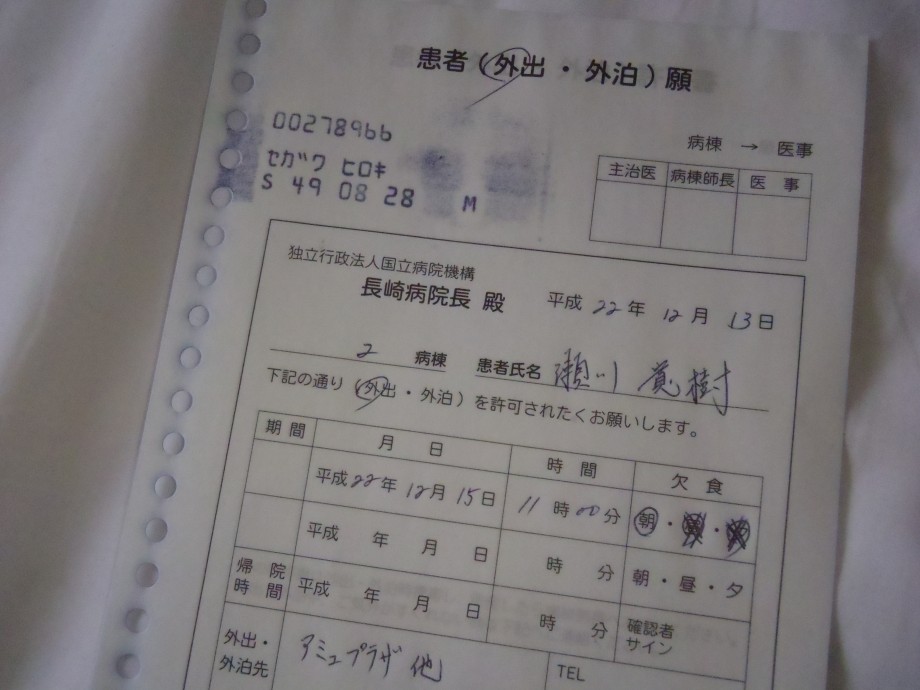 患者(外出・外泊)願
00278966
セガワ ヒロキ
S 49 08 28 M
病棟 → 医事
主治医 病棟師長 医事
独立行政法人国立病院機構
長崎病院長 殿 平成22年12月13日
2 病棟 患者氏名 瀬川 寛樹
下記の通り(外出・外泊)を許可されたくお願いします。
期間 月日 時間 欠食
平成22年12月15日 11時00分 朝・昼・夕
平成 年 月 日 時 分 朝・昼・夕
帰院時間 平成 年 月 日 時 分 確認者サイン
外出・外泊先 アミュプラザ 他 TEL